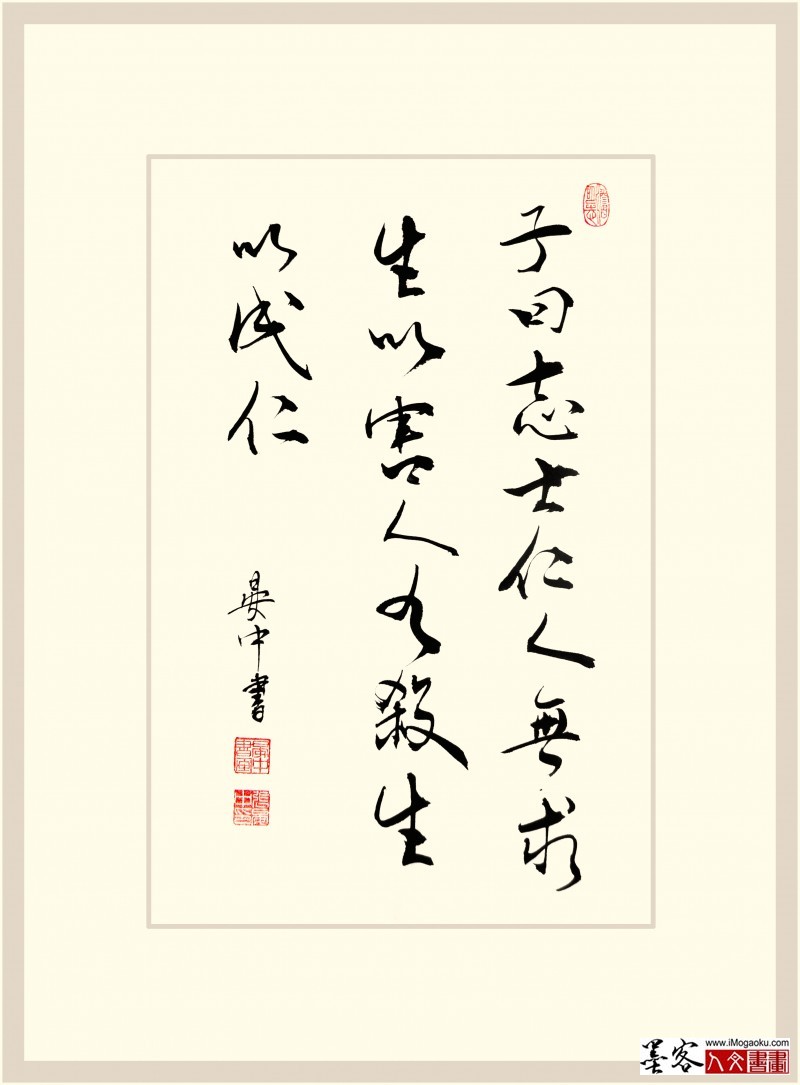 子曰志士仁人無求
生以害人有殺生
以成仁
晏中書
墨客
www.iMogaoku.com
人文書畫